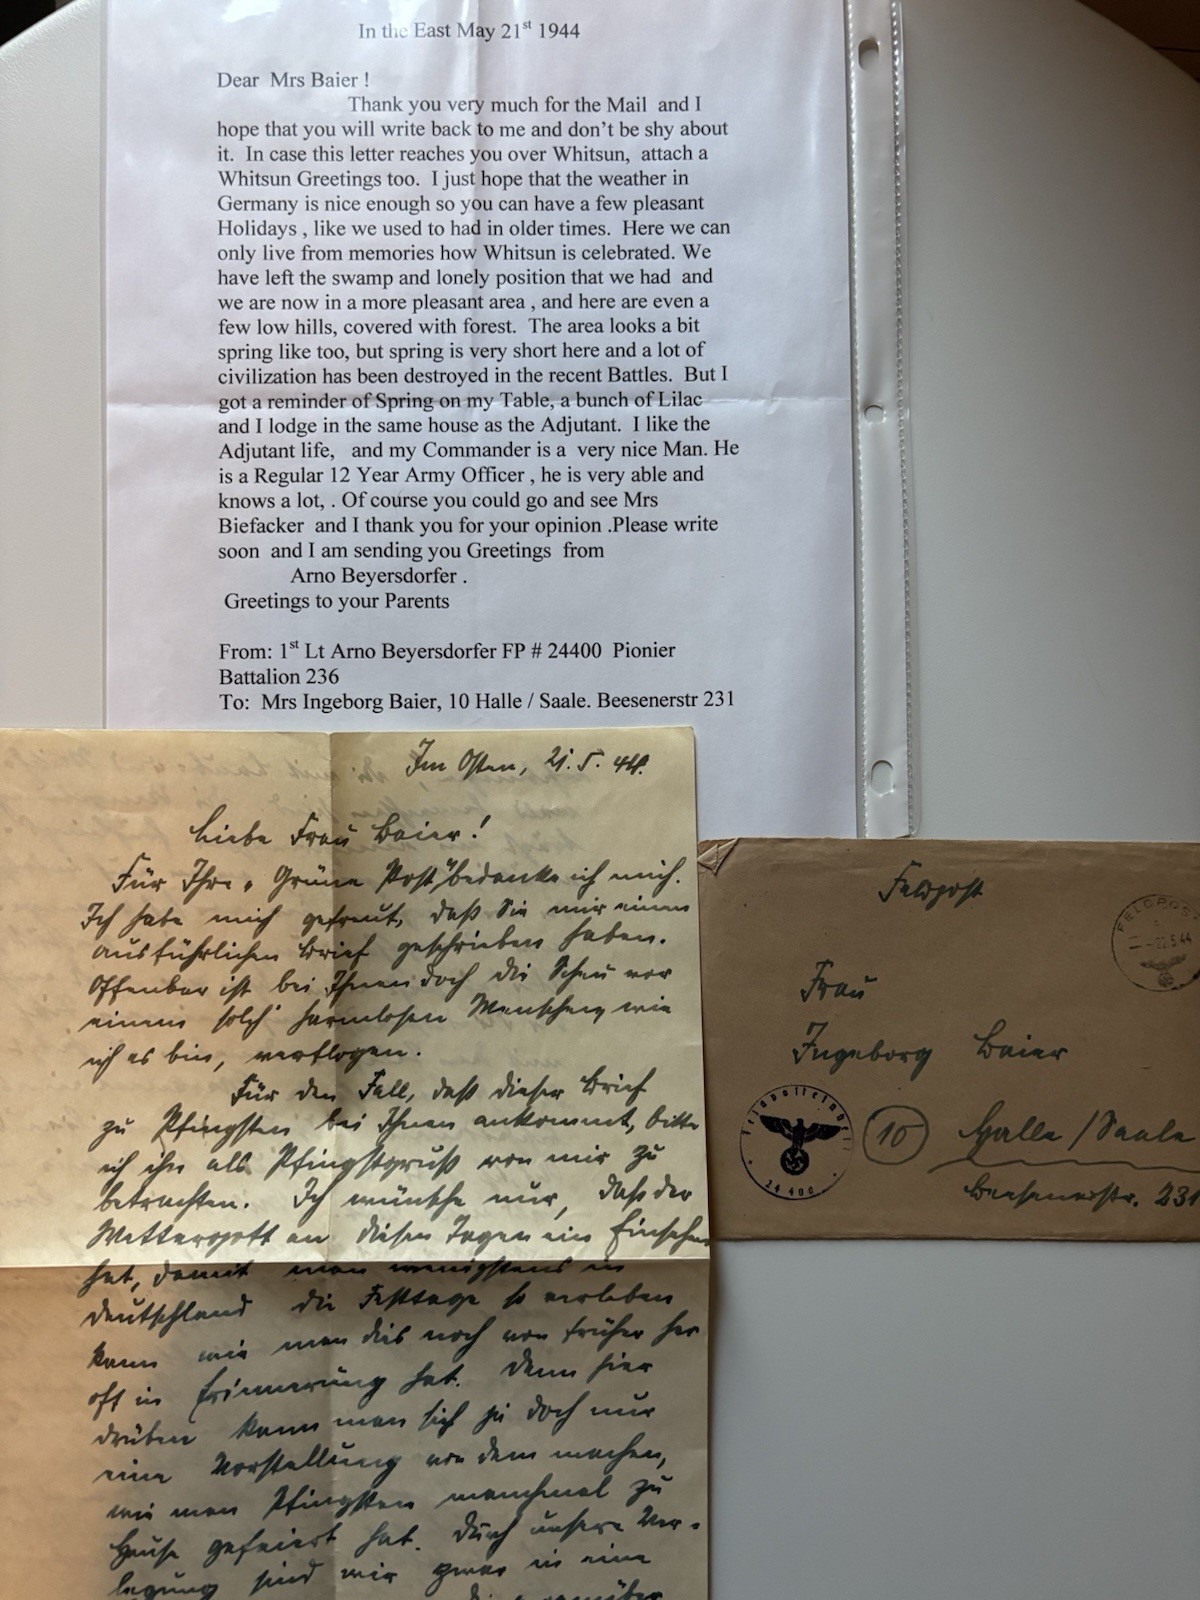 In the East May 21st 1944
Dear Mrs Baier !
Thank you very much for the Mail and I
hope that you will write back to me and don't be shy about
it. In case this letter reaches you over Whitsun, attach a
Whitsun Greetings too. I just hope that the weather in
Germany is nice enough so you can have a few pleasant
Holidays , like we used to had in older times. Here we can
only live from memories how Whitsun is celebrated. We
have left the swamp and lonely position that we had and
we are now in a more pleasant area , and here are even a
few low hills, covered with forest. The area looks a bit
spring like too, but spring is very short here and a lot of
civilization has been destroyed in the recent Battles. But I
got a reminder of Spring on my Table, a bunch of Lilac
and I lodge in the same house as the Adjutant. I like the
Adjutant life, and my Commander is a very nice Man. He
is a Regular 12 Year Army Officer , he is very able and
knows a lot, . Of course you could go and see Mrs
Biefacker and I thank you for your opinion .Please write
soon and I am sending you Greetings from
Arno Beyersdorfer .
Greetings to your Parents
From: 1st Lt Arno Beyersdorfer FP # 24400 Pionier
Battalion 236
To: Mrs Ingeborg Baier, 10 Halle / Saale. Beesenerstr 231
Im Osten, 21.5.44.
Liebe Frau Baier!
Für Ihre „Grüne Post" bedanke ich mich.
Ich habe mich gefreut, daß Sie mir einen
ausführlichen Brief geschrieben haben.
Offenbar ist bei Ihnen doch die Scheu vor
einem solch' harmlosen Menschen, wie
ich es bin, verflogen.
Für den Fall, daß dieser Brief
zu Pfingsten bei Ihnen ankommt, bitte
ich ihn als Pfingstgruß von mir zu
betrachten. Ich wünsche nur, daß der
Wettergott an diesen Tagen ein Einsehen
hat, damit man wenigstens in
Deutschland die Festtage so verleben
kann wie man dies noch von früher her
oft in Erinnerung hat. Denn hier
drüben kann man sich ja doch nur
eine Vorstellung von dem machen,
wie man Pfingsten manchmal zu
Hause gefeiert hat. Durch unsere Ver-
legung sind wir zwar in eine
Feldpost
FELDPOST
-22.5.44
Frau
Ingeborg Baier
10 Halle / Saale
Beesenerstr. 231
24400